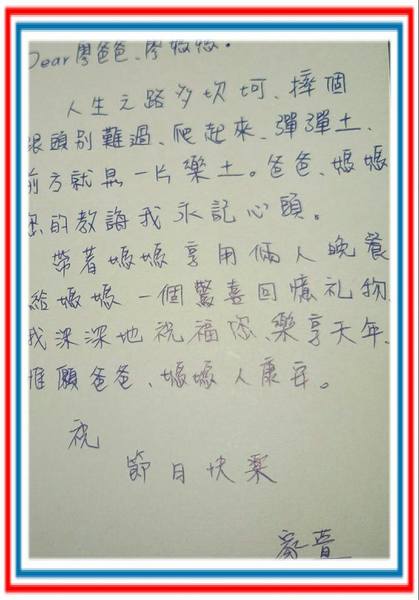 Dear 廖爸爸、廖媽媽。
人生之路多坎坷、摔個
跟頭别難過、爬起來、彈彈土、
前方就是一片樂土。爸爸、媽媽
您的教誨我永記心頭。
帶著媽媽享用倆人晚餐
給媽媽一個驚喜回饋礼物
我深深地祝福您、樂享天年、
惟願爸爸、媽媽人康安。
祝
節日快樂